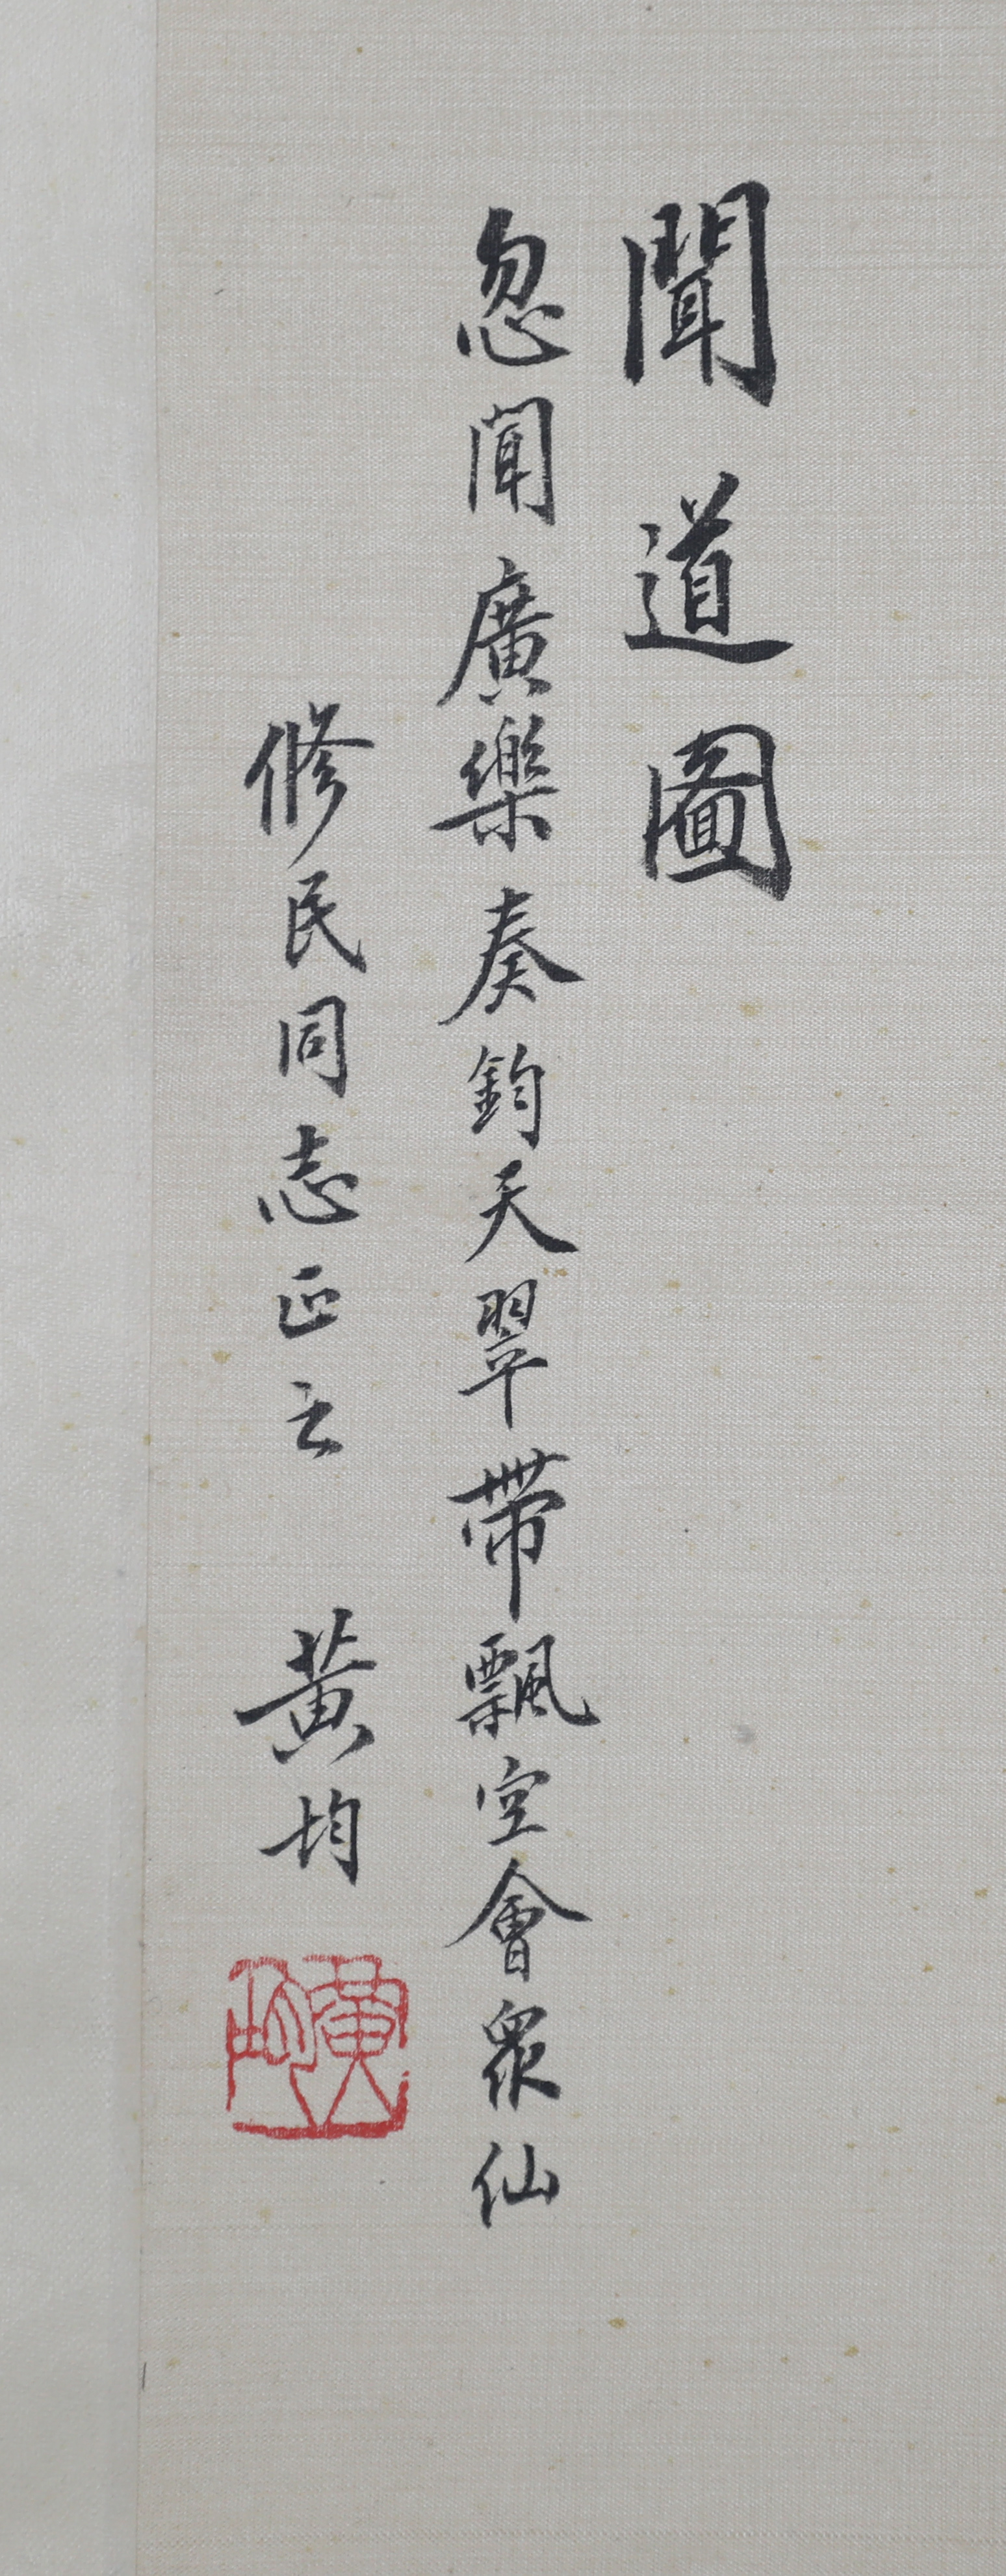 聞道圖
忽聞廣樂奏鈞天翠帶飄空會衆仙
修民同志正之 黃均
黃均